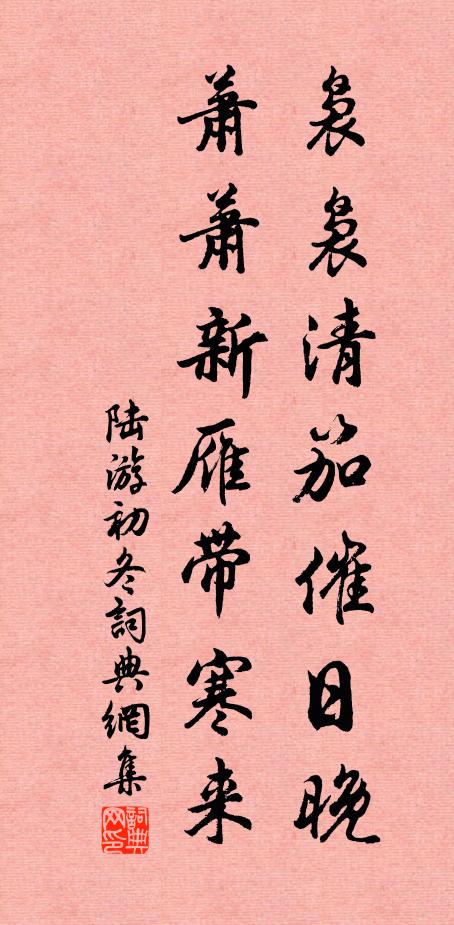 袅袅清笳催日晚
萧萧新雁带寒来
陆游初冬词典網集
詞典网印